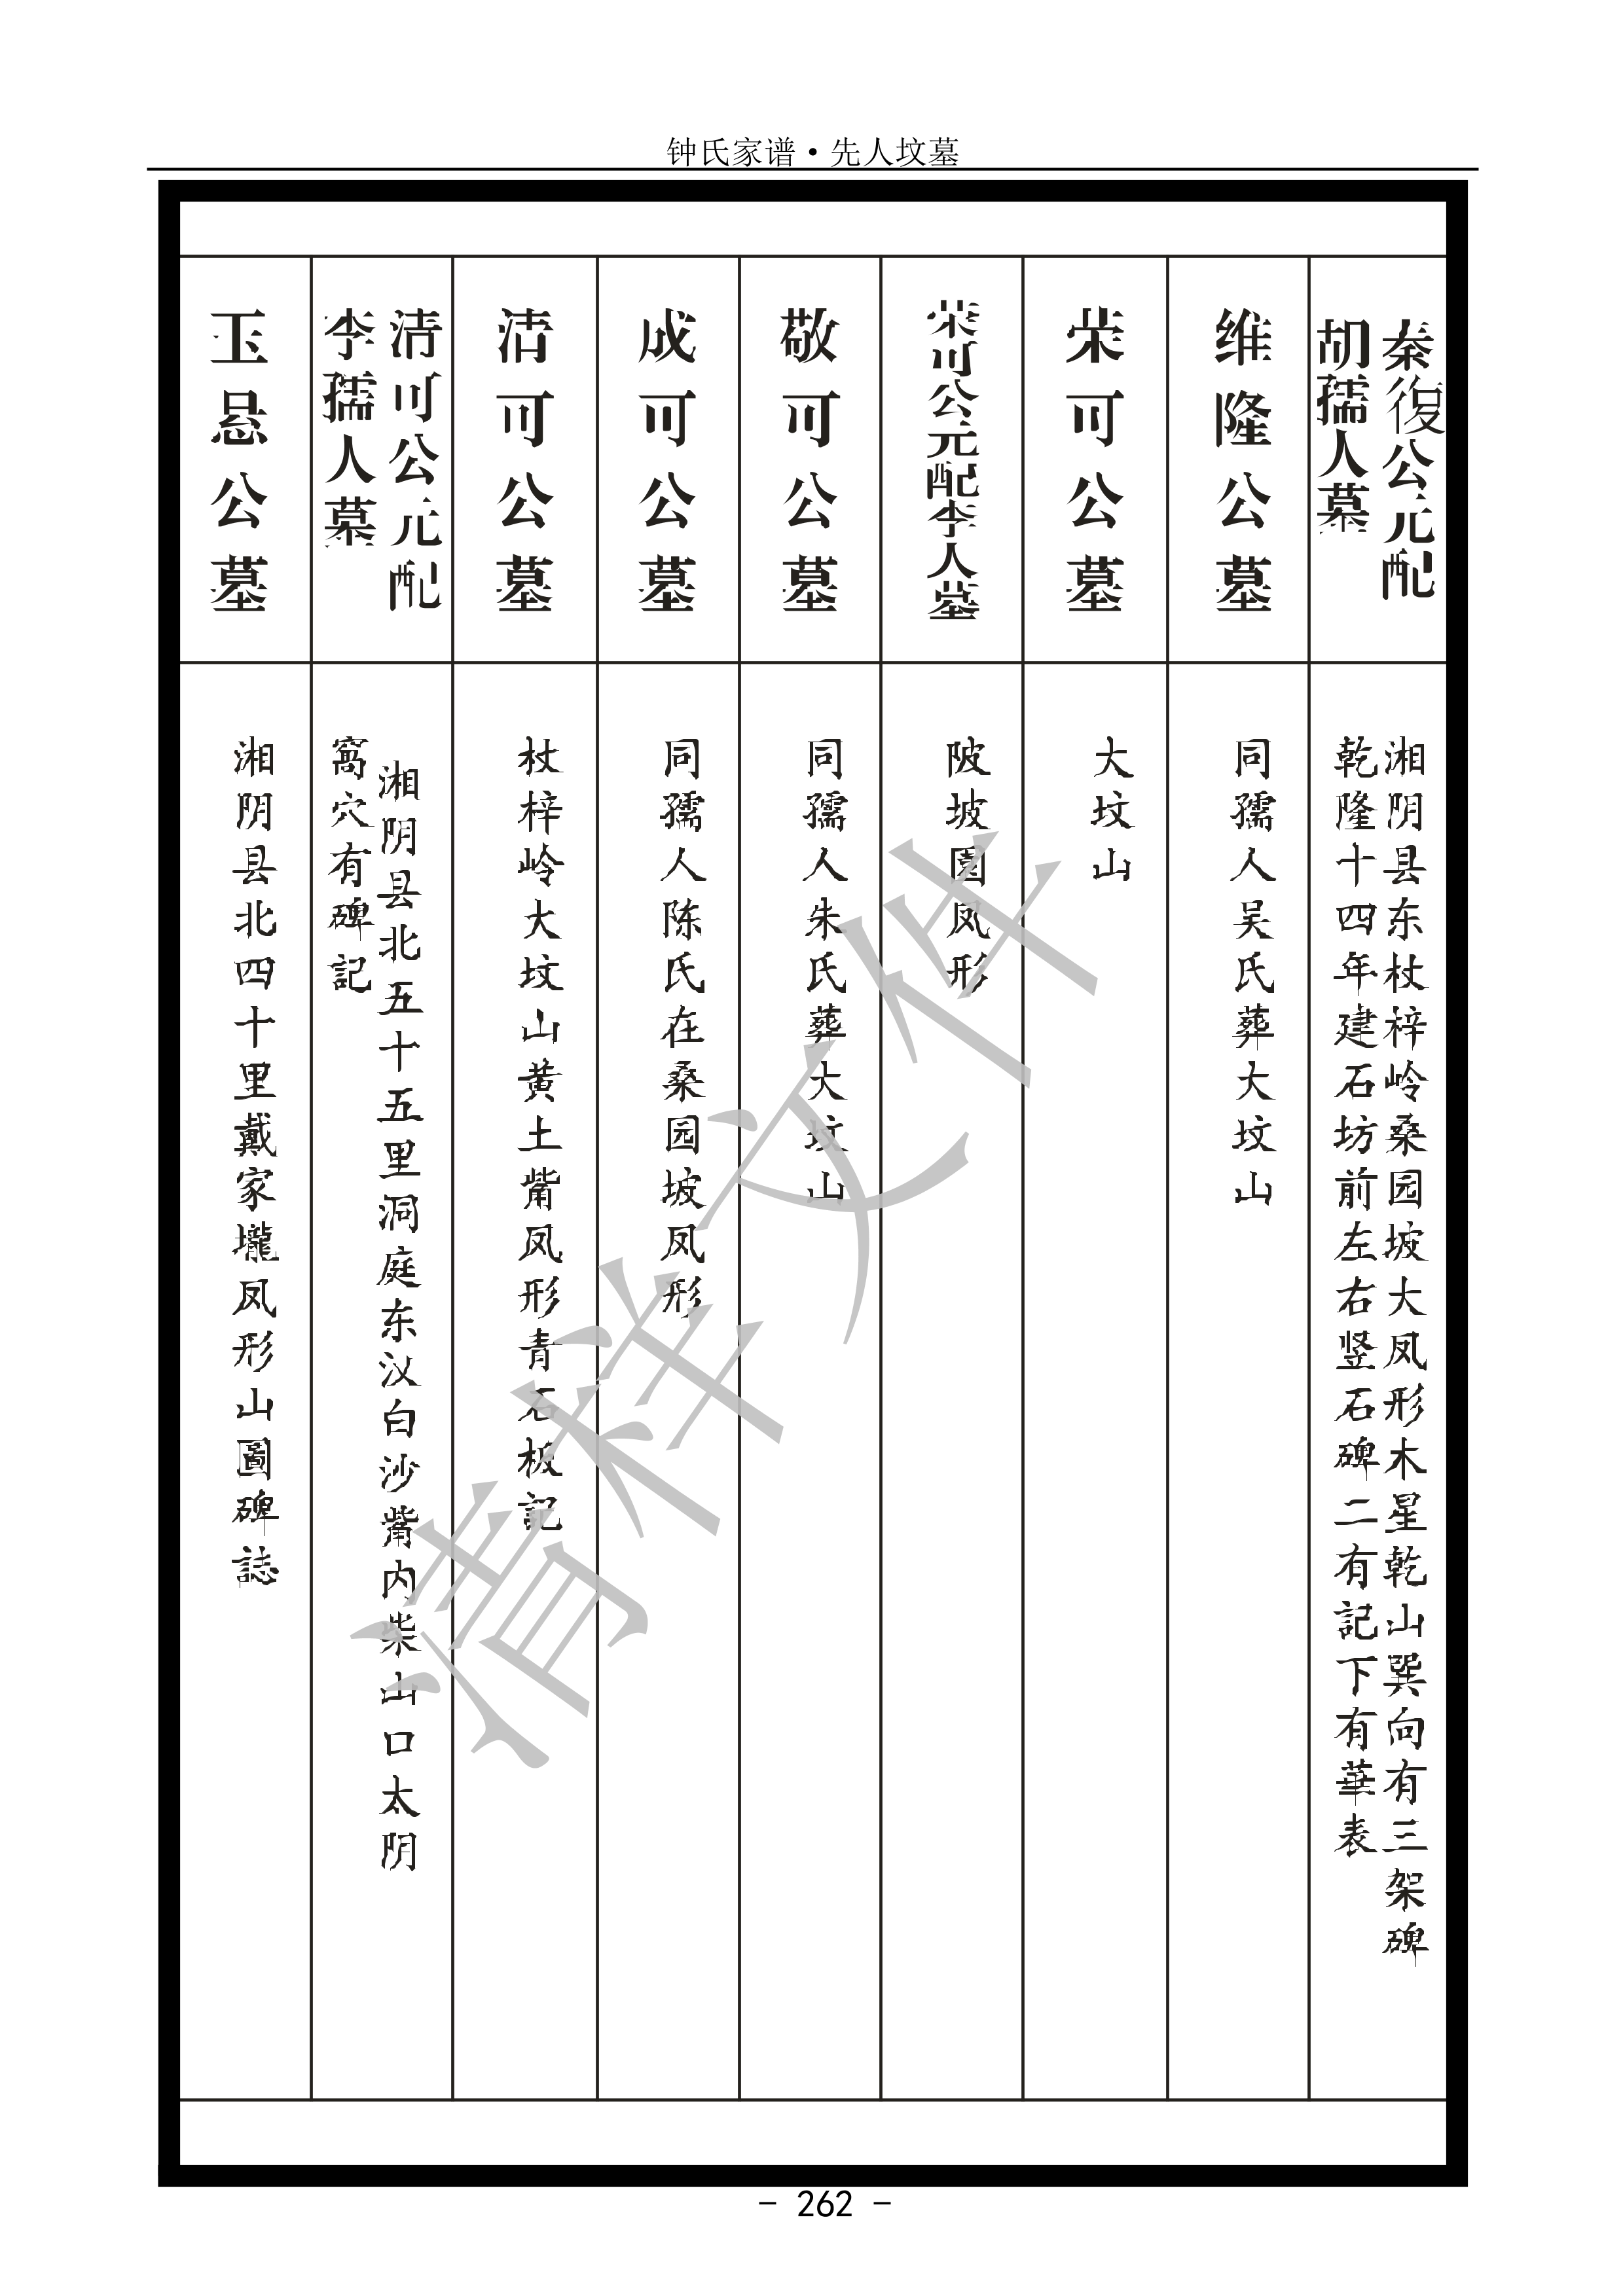 钟氏家谱·先人坟墓
秦復公元配
胡孺人墓
湘阴县东杖梓岭桑园坡大凤形木星乾山巽向有三架碑
乾隆十四年建石坊前左右竖石碑二有記下有華表
维隆公墓
同孺人吴氏葬大坟山
荣可公墓
大坟山
荣可公元配李人墓
陂坡園凤形
敬可公墓
同孺人朱氏葬大坟山
成可公墓
同孺人陈氏在桑园坡凤形
清可公墓
杖梓岭大坟山黄土嘴凤形青石板記
清可公元配
李孺人墓
湘阴县北五十五里洞庭东汊白沙嘴内柴山口太阴
窩穴有碑記
玉悬公墓
湘阴县北四十里戴家壠凤形山圖碑誌
清样文件
- 262 -